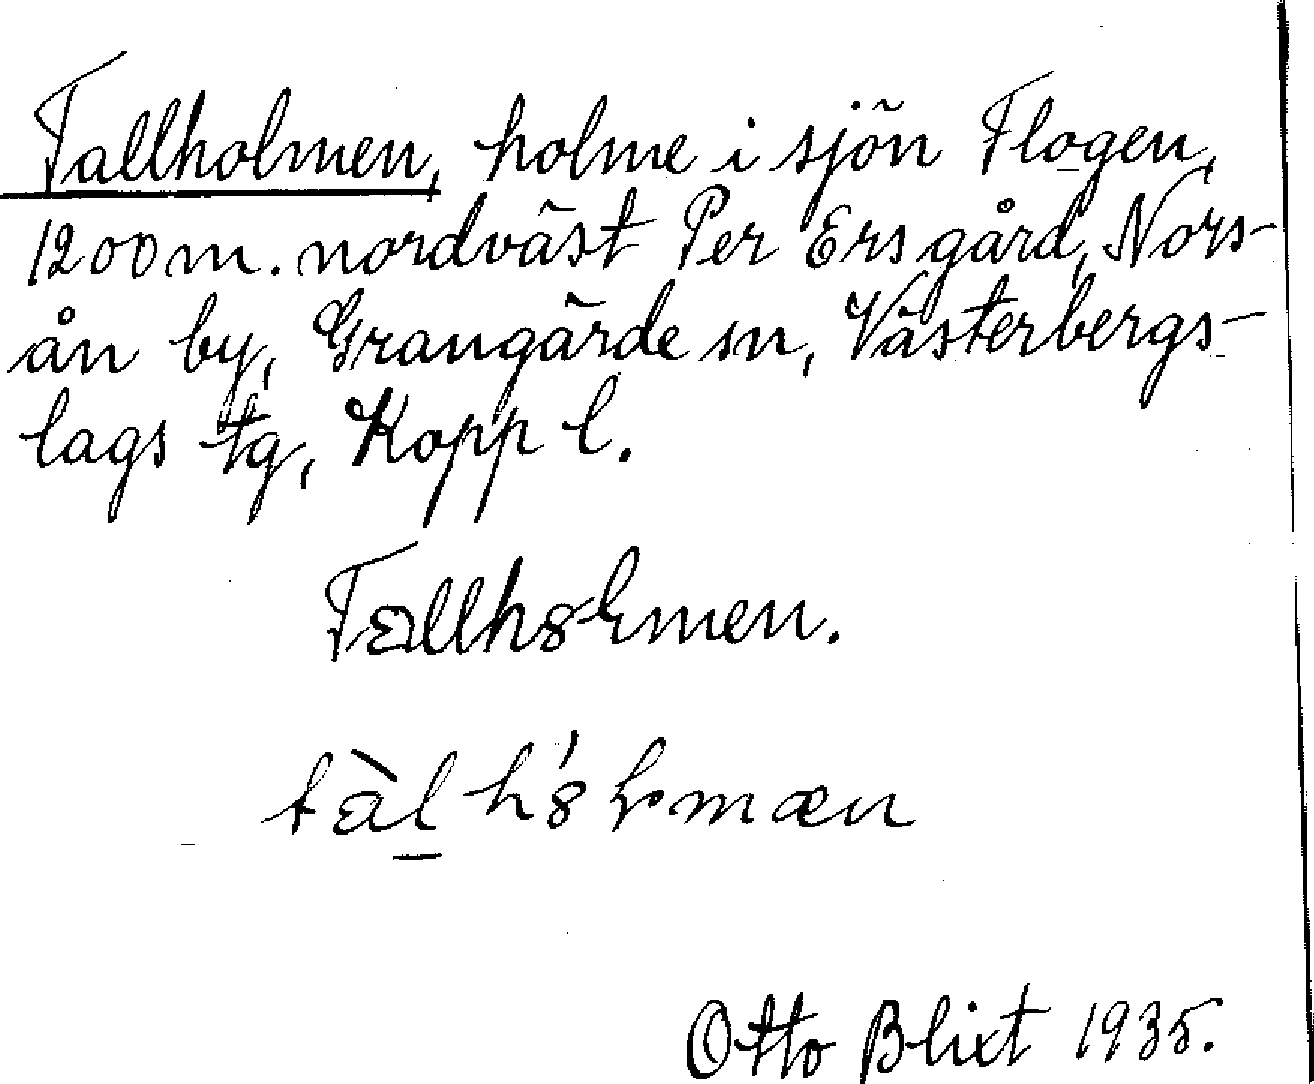 Tallholmen, holme i sjön Flogen,
1200 m. nordväst Per Ers gård, Nors-
ån by, Grangärde sn, Västerbergs-
lags tg, Kopp l.
Otto Blixt 1935.